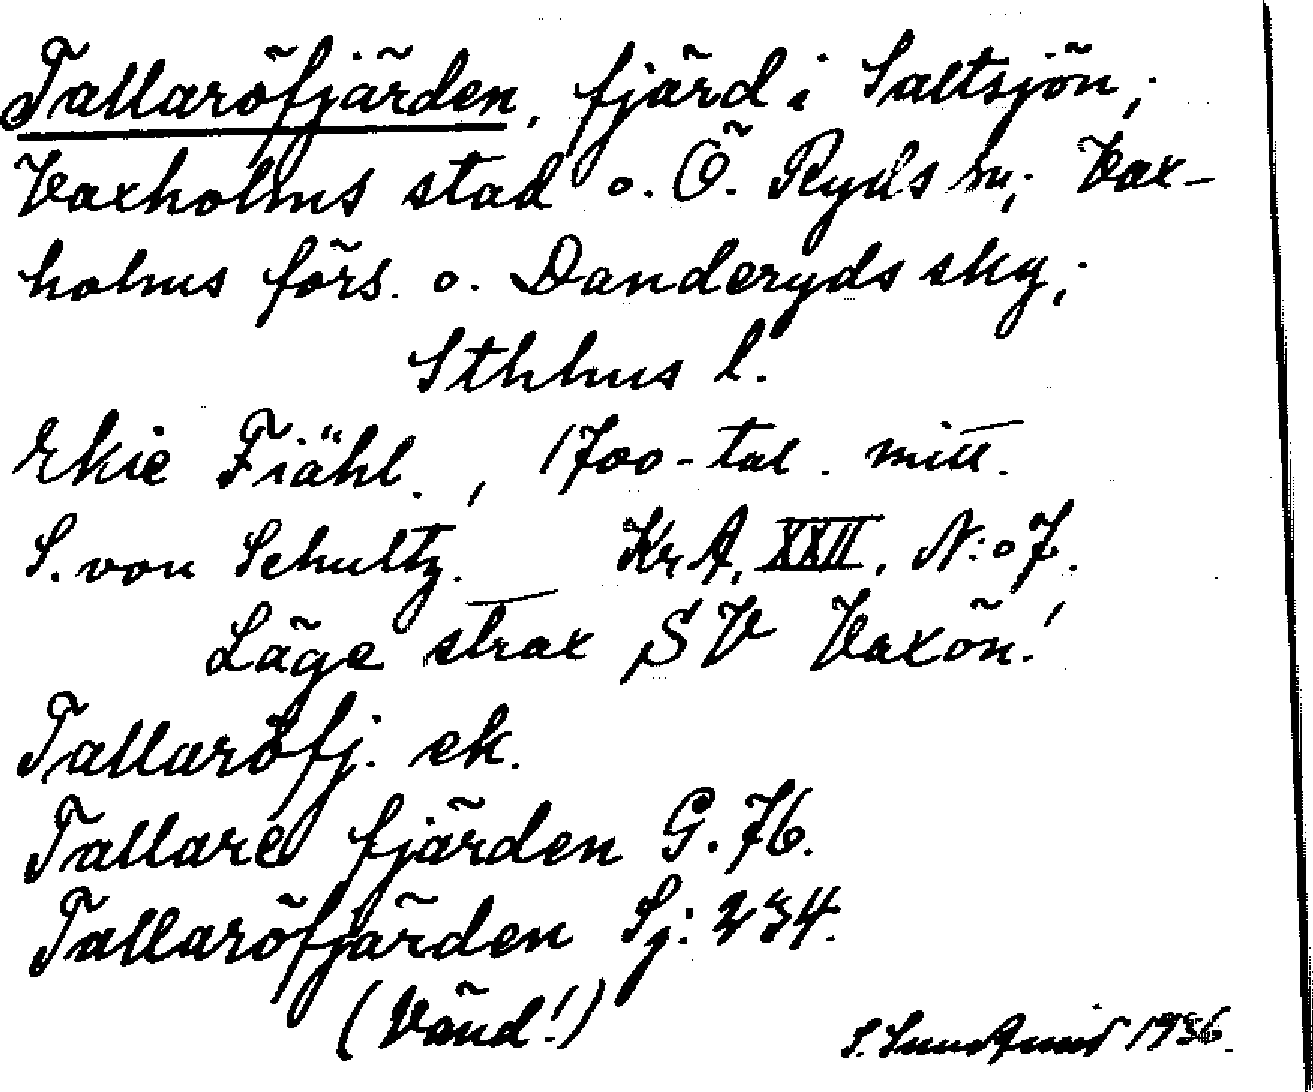 Tallaröfjärden, fjärd i Saltsjön;
Vaxholms stad o. Ö. Ryds sn; Vax-
holms förs. o. Danderyds skg;
Sthlms l.
Ekie Fiähl., 1700-tal. mitt.
S. von Schultz. Kr A, XXII, N:o 7.
Läge strax SV Vaxön!
Tallaröfj. ek.
Tallare fjärden G. 76.
Tallaröfjärden Sj: 234.
(Vänd!)
S. 1936.